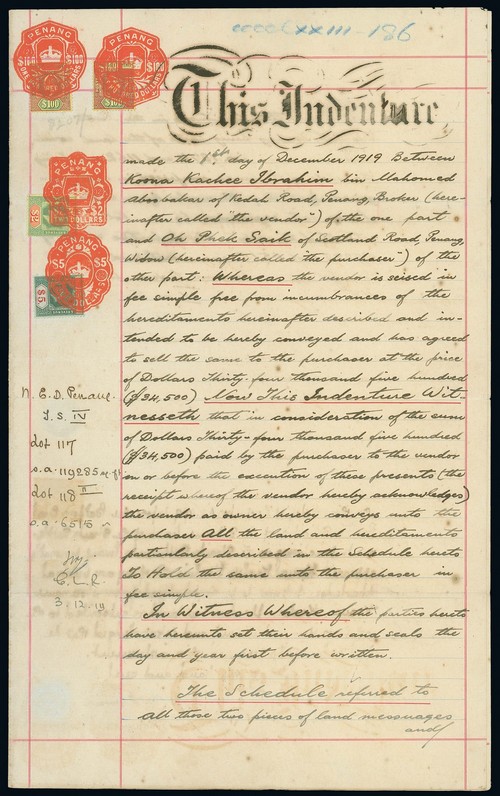 CCCCLXXIII-186
PENANG
$100 $100
ONE HUNDRED DOLLARS
$100
PENANG
$100 $100
ONE HUNDRED DOLLARS
$100
This Indenture
made the 1st day of December 1919 Between
Kooma Kachee Ibrahim bin Mahomed
Aboobakar of Kedah Road, Penang, Broker (here-
inafter called "the vendor") of the one part
and Oh Phek Saik of Scotland Road, Penang,
Widow (hereinafter called the purchaser") of the
other part: Whereas the vendor is seised in
fee simple free from incumbrances of the
hereditaments hereinafter described and in-
tended to be hereby conveyed and has agreed
to sell the same to the purchaser at the price
of Dollars Thirty-four thousand five hundred
($34,500) Now This Indenture Wit-
nesseth that in consideration of the sum
of Dollars Thirty-four thousand five hundred
($34,500) paid by the purchaser to the vendor
on or before the execution of these presents (the
receipt whereof the vendor hereby acknowledges)
the vendor as owner hereby conveys unto the
purchaser All the land and hereditaments
particularly described in the Schedule hereto
To Hold the same unto the purchaser in
fee simple.
In Witness Whereof the parties hereto
have hereunto set their hands and seals the
day and year first before written.
The Schedule referred to
All those two pieces of land messuages
and
PENANG
$2 $2
DOLLARS
$2
PENANG
$5 $5
DOLLARS
$5
N. E. D. Penang.
T. S. IV
Lot 117
s.a. 119285 sq. ft
Lot 118 II
s.a. 6515 "
3.12.19